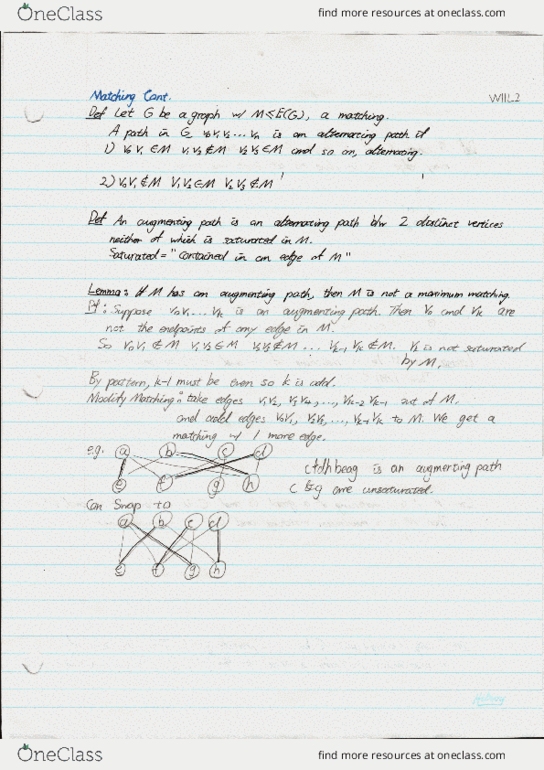 OneClass find more resources at oneclass.com
Matching Cont. W11L2
Def Let G be a graph w/ M≤E(G), a matching.
A path in G v₀v₁v₂...vₙ is an alternating path if
1) v₀v₁∈M v₁v₂∉M v₂v₃∈M and so on, alternating.
2) v₀v₁∉M v₁v₂∈M v₂v₃∉M
Def An augmenting path is an alternating path b/w 2 distinct vertices
neither of which is saturated in M.
Saturated = "contained in an edge of M"
Lemma: If M has an augmenting path, then M is not a maximum matching.
Pf: Suppose v₀v₁...vₖ is an augmenting path. Then v₀ and vₖ are
not the endpoints of any edge in M.
So v₀v₁∉M v₁v₂∈M v₂v₃∉M ... vₖ₋₁vₖ∉M. vₖ is not saturated
by M.
By pattern, k-1 must be even so k is odd.
Modify Matching: take edges v₁v₂, v₃v₄, ..., vₖ₋₂vₖ₋₁ out of M.
and add edges v₀v₁, v₂v₃, ..., vₖ₋₁vₖ to M. We get a
matching w/ 1 more edge.
e.g. a b c d
cfdhbeag is an augmenting path
e f g h
c & g are unsaturated.
Can Swap to
a b c d
e f g h
OneClass find more resources at oneclass.com